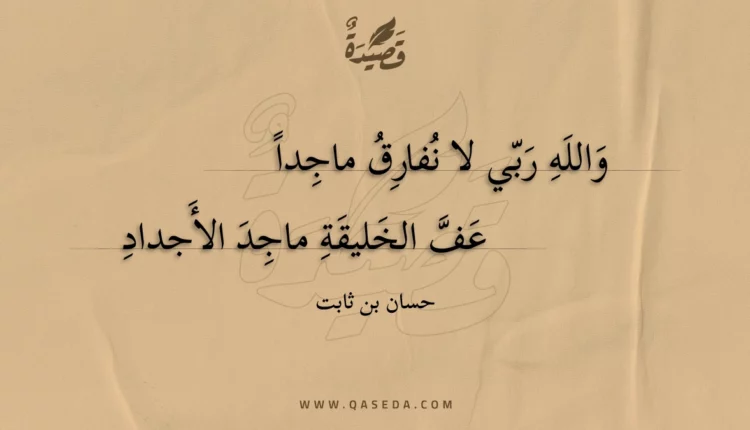 قَصِيدَةٌ
وَاللَهِ رَبّي لا نُفارِقُ ماجِداً
عَفَّ الخَليقَةِ ماجِدَ الأَجدادِ
حسان بن ثابت
WWW.QASEDA.COM